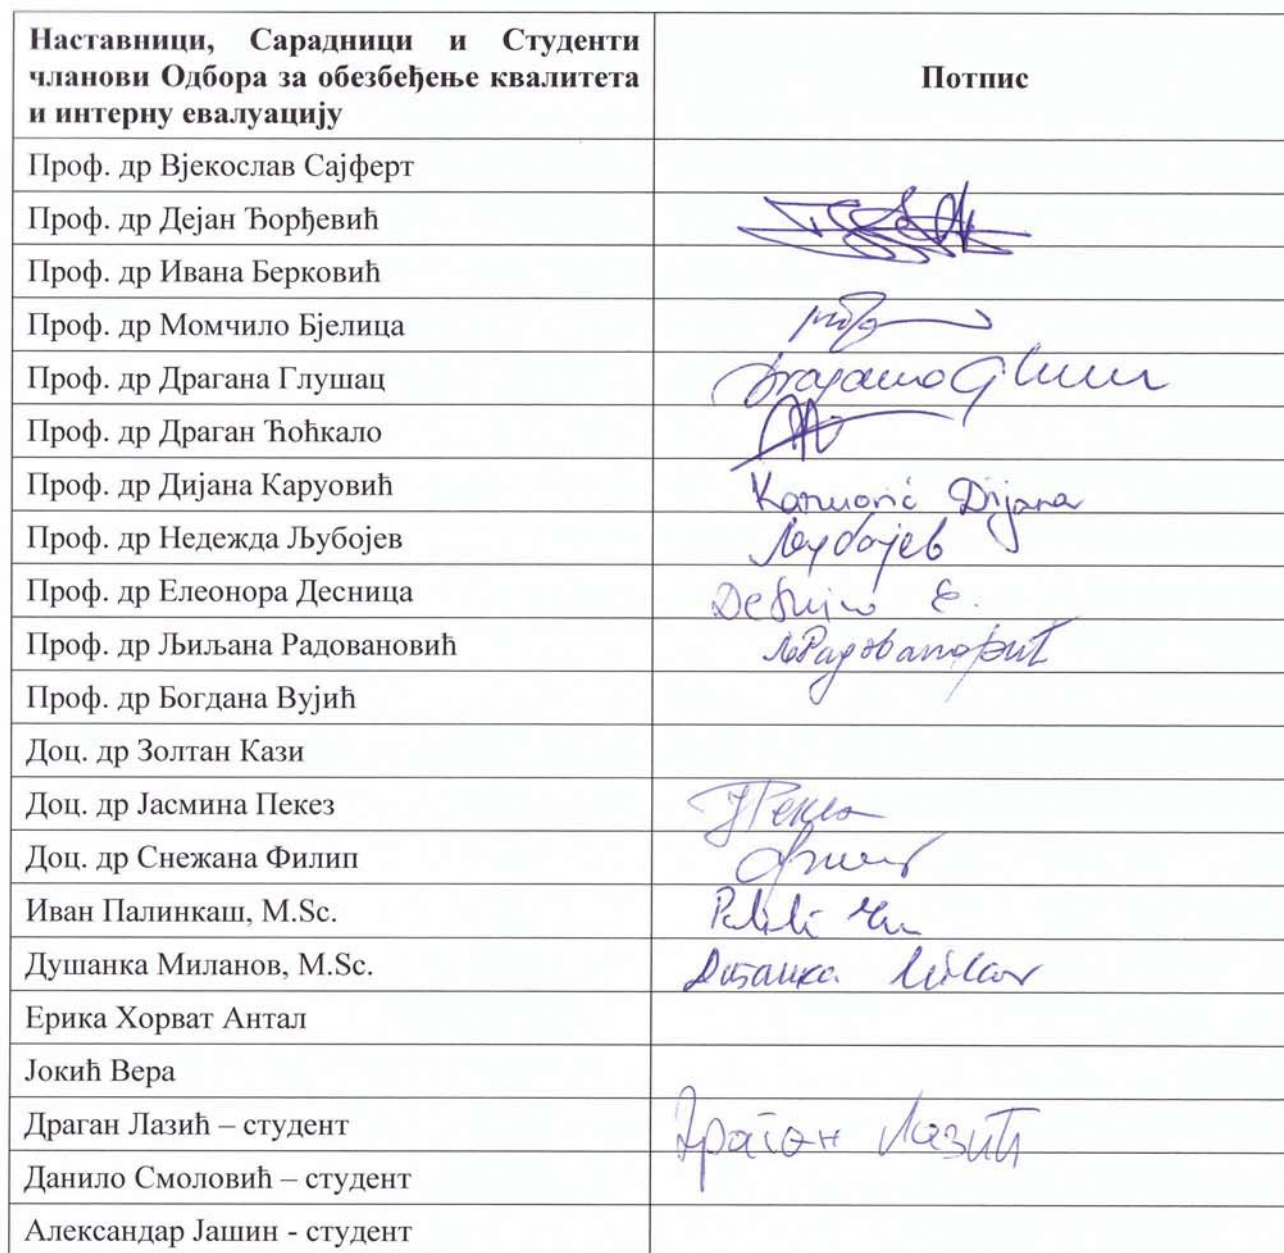 Наставници, Сарадници и Студенти
чланови Одбора за обезбеђење квалитета
и интерну евалуацију
Потпис
Проф. др Вјекослав Сајферт
Проф. др Дејан Ђорђевић
Проф. др Ивана Берковић
Проф. др Момчило Бјелица
Проф. др Драгана Глушац
Проф. др Драган Ћоћкало
Проф. др Дијана Каруовић
Karuović Dijana
Проф. др Недежда Љубојев
Љубојев
Проф. др Елеонора Десница
Проф. др Љиљана Радовановић
ЉРадовановић
Проф. др Богдана Вујић
Доц. др Золтан Кази
Доц. др Јасмина Пекез
Доц. др Снежана Филип
Иван Палинкаш, M.Sc.
Душанка Миланов, M.Sc.
Душанка
Ерика Хорват Антал
Јокић Вера
Драган Лазић – студент
Драган Лазић
Данило Смоловић – студент
Александар Јашин - студент